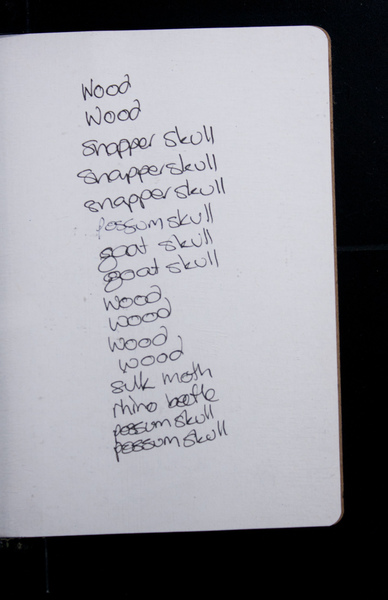 Wood
Wood
snapper skull
snapper skull
snapper skull
possum skull
goat skull
goat skull
wood
wood
wood
wood
silk moth
rhino beetle
possum skull
possum skull